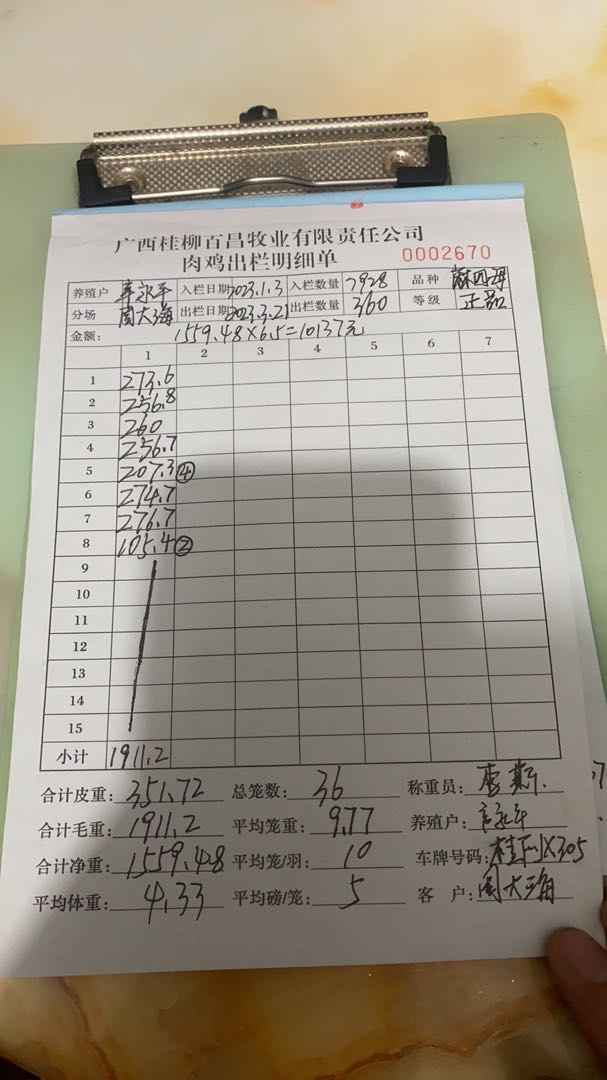 广西桂柳百昌牧业有限责任公司
肉鸡出栏明细单 0002670
养殖户 李永平 入栏日期 2023.1.3 入栏数量 7928 品种 麻四
分场 周大海 出栏日期 2023.3.21 出栏数量 360 等级 正品
金额: 1559.48×6.5=10137元
1 2 3 4 5 6 7
1 273.6
2 256.8
3 260
4 256.7
5 207.3 ④
6 274.7
7 276.7
8 105.4 ②
9
10
11
12
13
14
15
小计 1911.2
合计皮重: 351.72 总笼数: 36 称重员:
合计毛重: 1911.2 平均笼重: 9.77 养殖户:
合计净重: 1559.48 平均笼/羽: 10 车牌号码: X305
平均体重: 4.33 平均磅/笼: 5 客户: 周大海